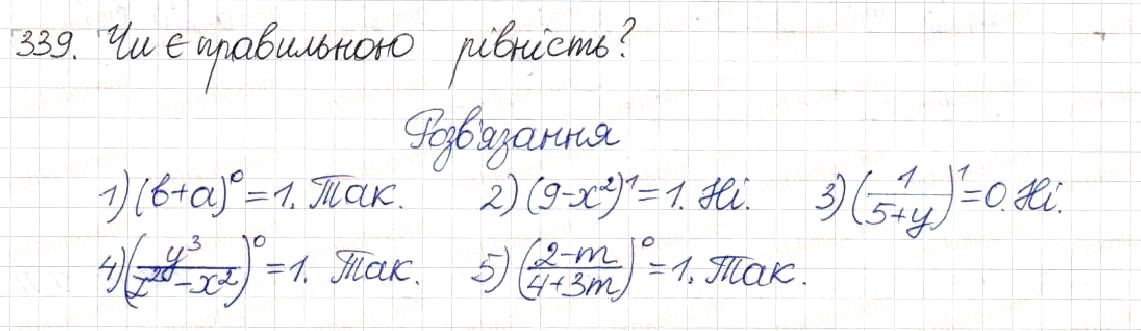 339. Чи є правильною рівність?
Розв'язання
1) (b+a)⁰ = 1. Так. 2) (9-x²)¹ = 1. Ні. 3) (1/(5+y))¹ = 0. Ні.
4) (y³/(z²⁰-x²))⁰ = 1. Так. 5) ((2-m)/(4+3m))⁰ = 1. Так.